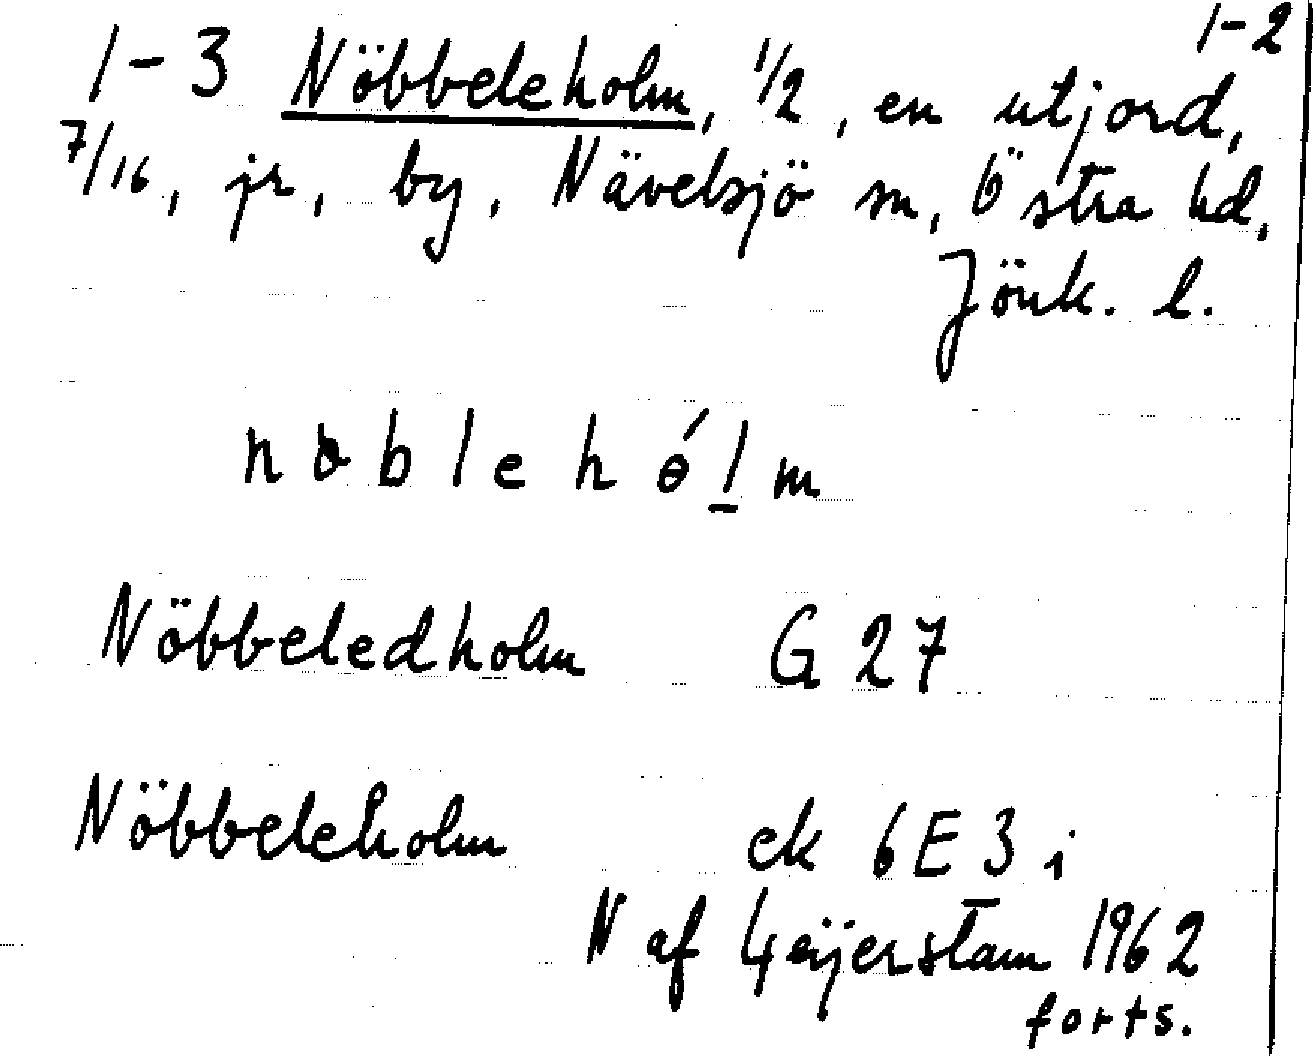 1-2
1-3 Nöbbeleholm, 1/2, en utjord,
7/16, jr, by, Nävelsjö sn, Östra hd,
Jönk. l.
noblehólm
Nöbbeledholm G 27
Nöbbeleholm ek 6E3i
N af Geijerstam 1962
forts.